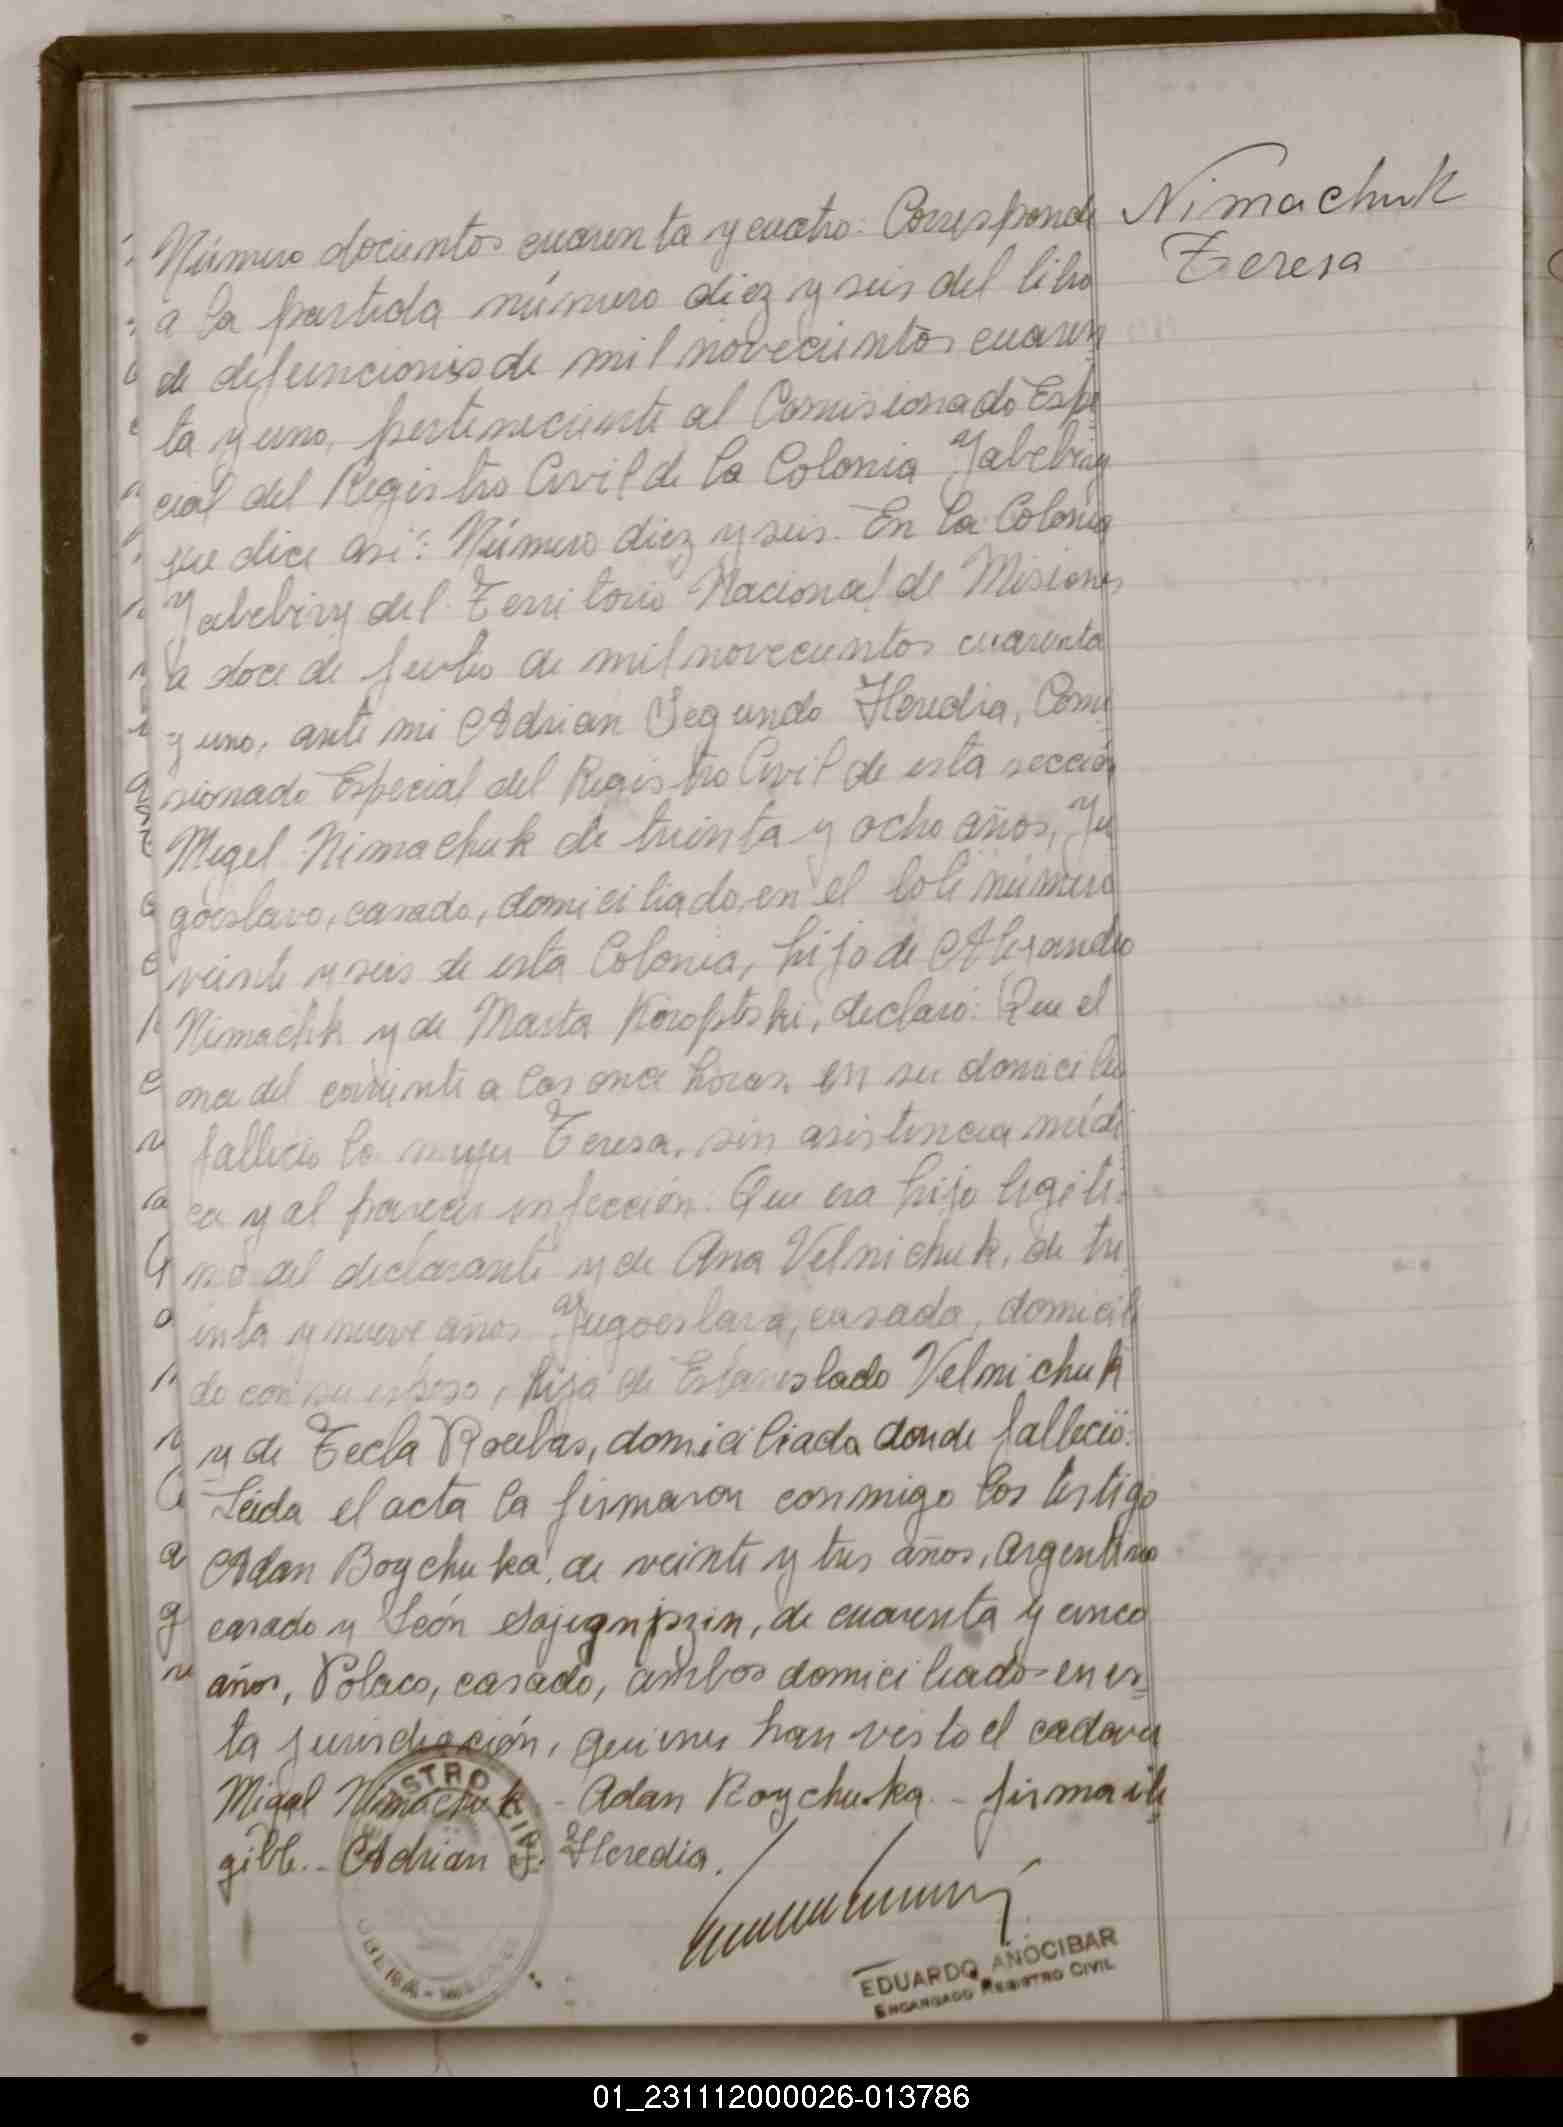 Nimachuk
Teresa
Número docientos cuarenta y cuatro: Corresponde
a la partida número diez y seis del libro
de defunciones de mil novecientos cuaren
ta y uno, perteneciente al Comisionado Espe
cial del Registro Civil de la Colonia Yabebiry
que dice asi: Número diez y seis. En la Colonia
Yabebiry del Territorio Nacional de Misiones
a doce de Julio de mil novecientos cuarenta
y uno, ante mi Adrian Segundo Heredia, Comi
sionado Especial del Registro Civil de esta sección
Megel Nimachuk de treinta y ocho años, Yu
goeslavo, casado, domiciliado en el lote número
veinte y seis de esta Colonia, hijo de Alejandro
Nimachk y de Marta Koroptski, declaró: Que el
once del corriente a las once horas, en su domicilio
fallecio la mujer Teresa, sin asistencia médi
ca y al parecer infección: Que era hija legiti
ma del declarante y de Ana Velnichuk, de tre
inta y nueve años Yugoeslava, casada, domicili
do con su esposo, hija de Estanislado Velnichuk
y de Tecla Rocebas, domiciliada donde falleció.
Leida el acta la firmaron conmigo los testigo
Adan Boychuka, de veinte y tres años, Argentino
casado y León, de cuarenta y cinco
años, Polaco, casado, ambos domiciliados en es=
ta jurisdicción, quienes han visto el cadaver
Migal Nimachuk - Adan Roychuka - firma ile
gible.- Adrian S. Heredia.
REGISTRO CIVIL
EDUARDO AÑOCIBAR
ENCARGADO REGISTRO CIVIL
01_231112000026-013786